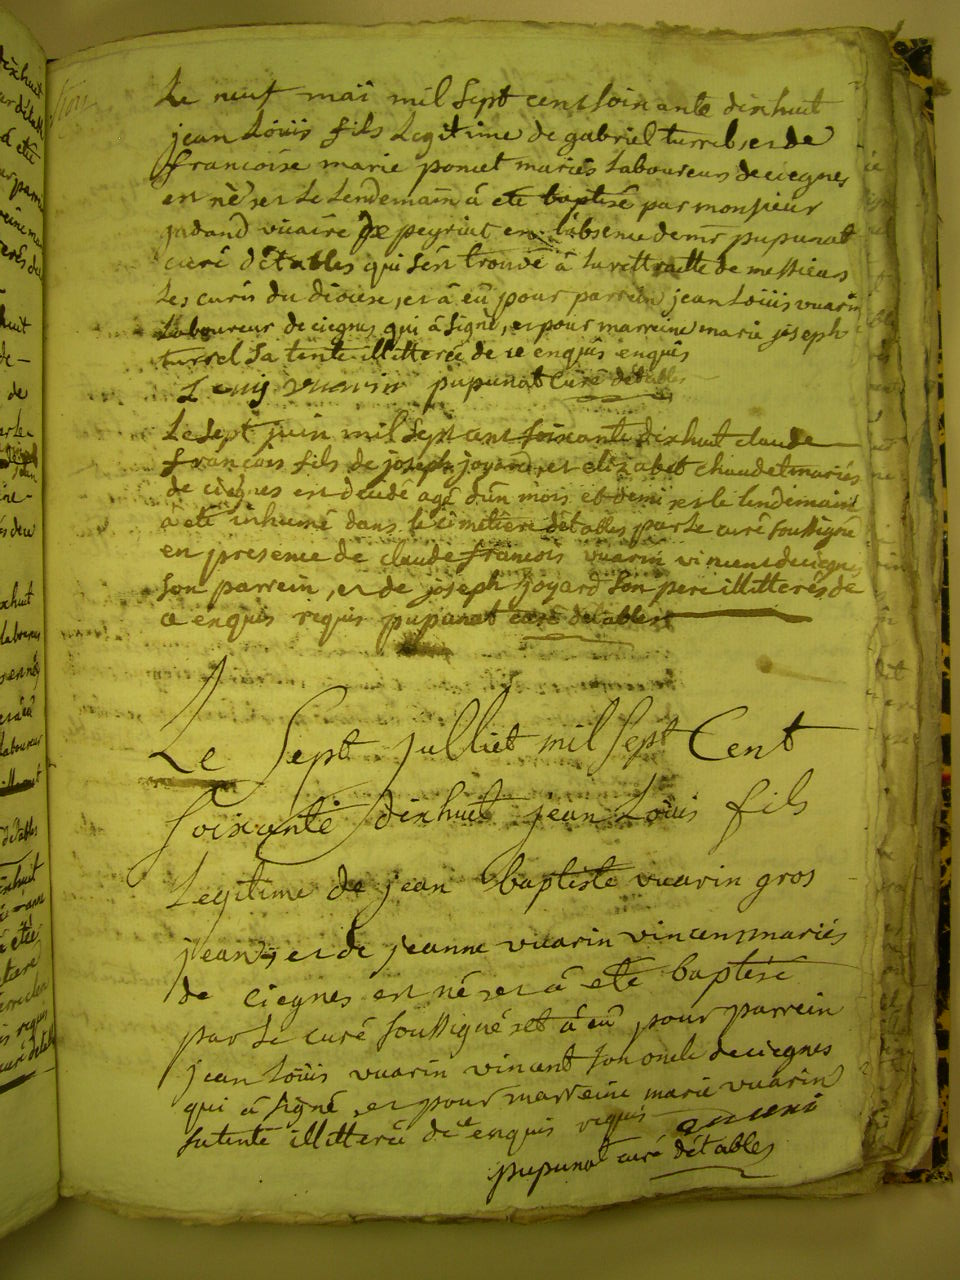 Le neuf mai mil sept cent soixante dixhuit
jean Loüis fils Legitime de gabriel turrel, et de
francoise marie poncet mariés Laboureurs de ciegnes
est né et Le Lendemain á eté baptisé par monsieur
jadand vicaire de peyriat en L'absence de mr pupunat
curé d'étables qui s'en trouvé á La rettraitte de messieurs
Les curés du diocese, et á eû pour parrein jean Loüis vuarin
Laboureur de ciegnes qui á signé, et pour marreine marie joseph
turrel sa tente illitterée de ce enquis enquis
Louis vuarin pupunat curé detables
Le sept juin mil sept cent soixante dixhuit claude
francois fils de joseph joyard, et elizabet chaudet mariés
de ciegnes est decedé agé d'un mois et demi et le lendemain
á eté inhumé dans le cimetiere détables par Le curé soussigné
en presence de claude francois vuarin vincent de ciegnes
son parrein, et de joseph joyard son pere illitterés de
ce enquis requis pupunat curé detables
Le Sept julliet mil sept Cent
soixante dixhuit jean Loüis fils
Legitime de jean baptiste vuarin gros
jean, et de jeanne vuarin vincent mariés
de ciegnes est né et á eté baptisé
par Le curé soussigné et á eû pour parrein
jean Loüis vuarin vincent son oncle de ciegnes
qui á signé, et pour marreine marie vuarin
sa tente illitterée de ce enquis requis
pupunat curé détables